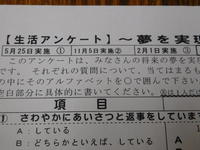 【生活アンケート】～夢を実現
5月25日実施 ① 11月5日実施② 2月1日実施 ③
このアンケートは、みなさんの将来の夢を実現
です。それぞれの質問について、当てはまるも
の中にそのアルファベットを○で囲んで下さい
空白部分に具体的に書いてください
項目
1 さわやかにあいさつと返事をしています
A:している
B:どちらかといえば、している